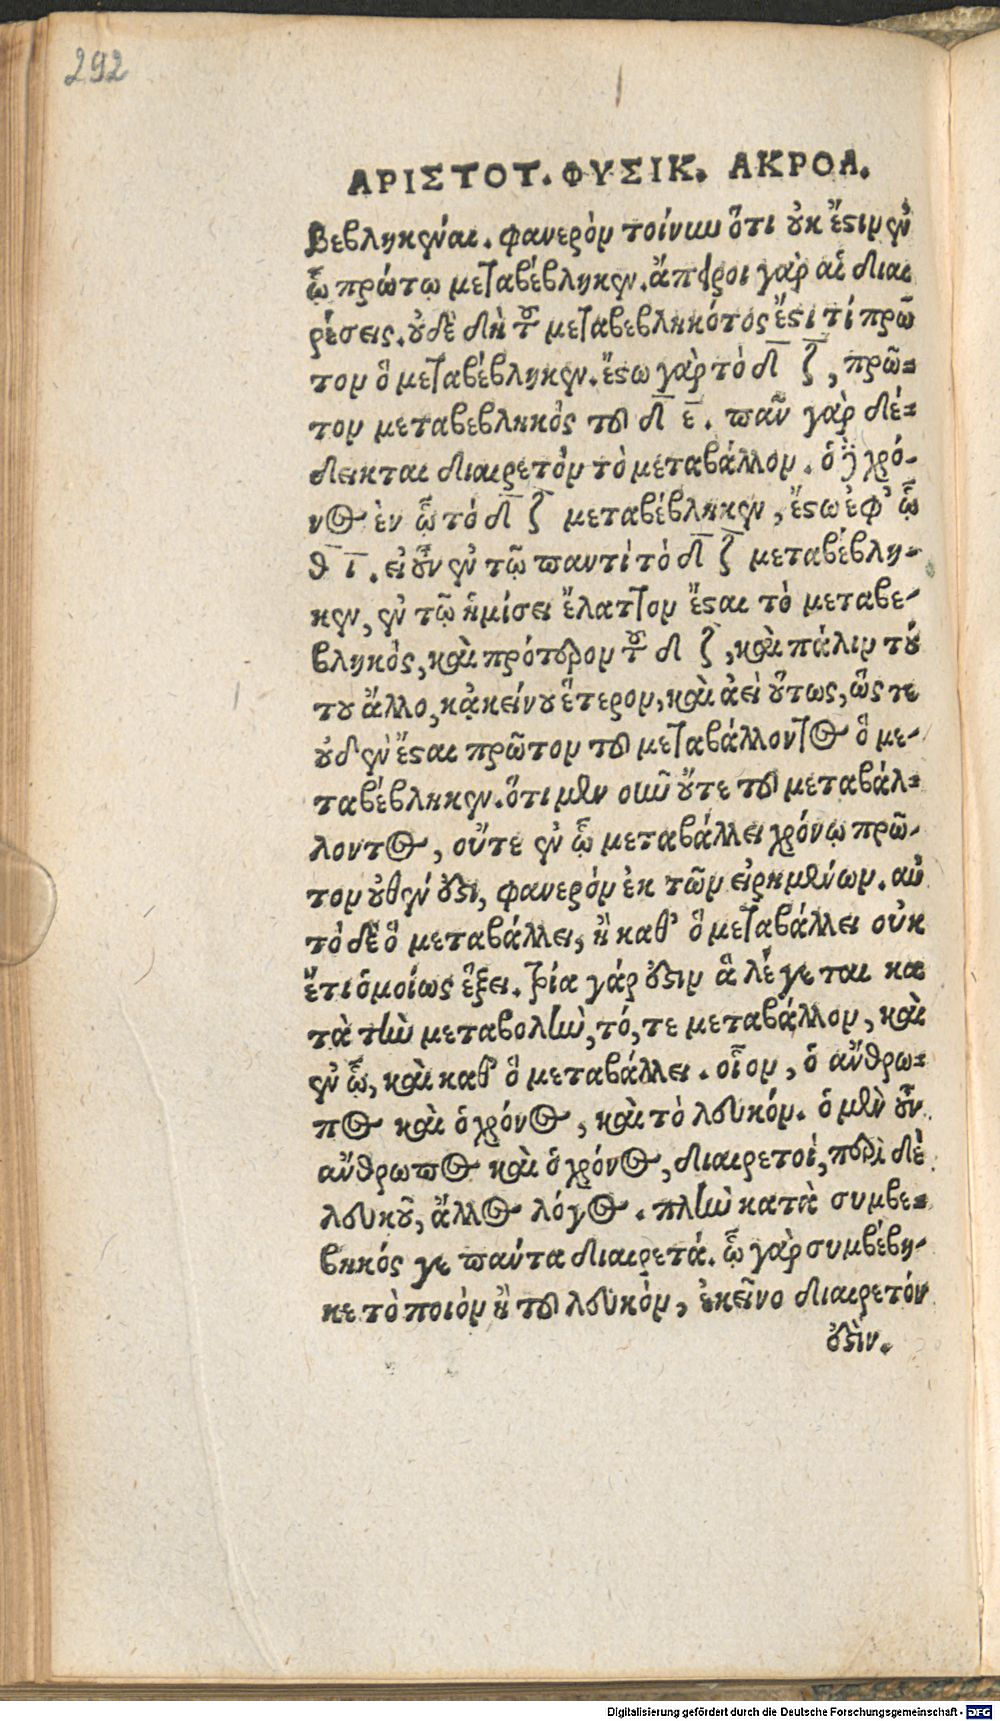 292
ΑΡΙΣΤΟΤ. ΦΥΣΙΚ. ΑΚΡΟΑ.
βεβληκέναι. φανερὸν τοίνυν ὅτι οὐκ ἔστιν ἐν
ᾧ πρώτῳ μεταβέβληκεν. ἄπειροι γὰρ αἱ διαι
ρέσεις. οὐδὲ δὴ τοῦ μεταβεβληκότος ἔστί τί πρῶ
τον ὃ μεταβέβληκεν. ἔστω γὰρ τὸ δ̅ ζ̅, πρῶ-
τον μεταβεβληκὸς τοῦ δ̅ ε̅. πᾶν γὰρ δέ-
δεικται διαιρετὸν τὸ μεταβάλλον. ὁ δὲ χρό-
νος ἐν ᾧ τὸ δ̅ ζ̅ μεταβέβληκεν, ἔστω ἐφ' ᾧ
θ̅ ι̅. εἰ οὖν ἐν τῷ παντὶ τὸ δ̅ ζ̅ μεταβέβλη-
κεν, ἐν τῷ ἡμίσει ἔλαττον ἔσται τὸ μεταβε-
βληκὸς, καὶ πρότερον τοῦ δ̅ ζ̅, καὶ πάλιν τού
του ἄλλο, κᾀκείνου ἕτερον, καὶ ἀεὶ οὕτως, ὥς τε
οὐδὲν ἔσται πρῶτον τοῦ μεταβάλλοντος ὃ με-
ταβέβληκεν. ὅτι μὲν οὖν οὔτε τοῦ μεταβάλ-
λοντος, οὔτε ἐν ᾧ μεταβάλλει χρόνῳ πρῶ-
τον οὐθέν ἐστι, φανερὸν ἐκ τῶν εἰρημένων. αὐ
τὸ δὲ ὃ μεταβάλλει, ἢ καθ' ὃ μεταβάλλει οὐκ
ἔτι ὁμοίως ἕξει. τρία γάρ ἐστιν ἃ λέγεται κα
τὰ τὴν μεταβολὴν, τό, τε μεταβάλλον, καὶ
ἐν ᾧ, καὶ καθ' ὃ μεταβάλλει. οἷον, ὁ ἄνθρω-
πος καὶ ὁ χρόνος, καὶ τὸ λευκόν. ὁ μὲν οὖν
ἄνθρωπος καὶ ὁ χρόνος, διαιρετοί, περὶ δὲ
λευκοῦ, ἄλλος λόγος. πλὴν κατὰ συμβε-
βηκός γε πάντα διαιρετά. ᾧ γὰρ συμβέβη-
κε τὸ ποιὸν ἢ τὸ λευκὸν, ἐκεῖνο διαιρετόν
ἐστὶν.
Digitalisierung gefördert durch die Deutsche Forschungsgemeinschaft - DFG